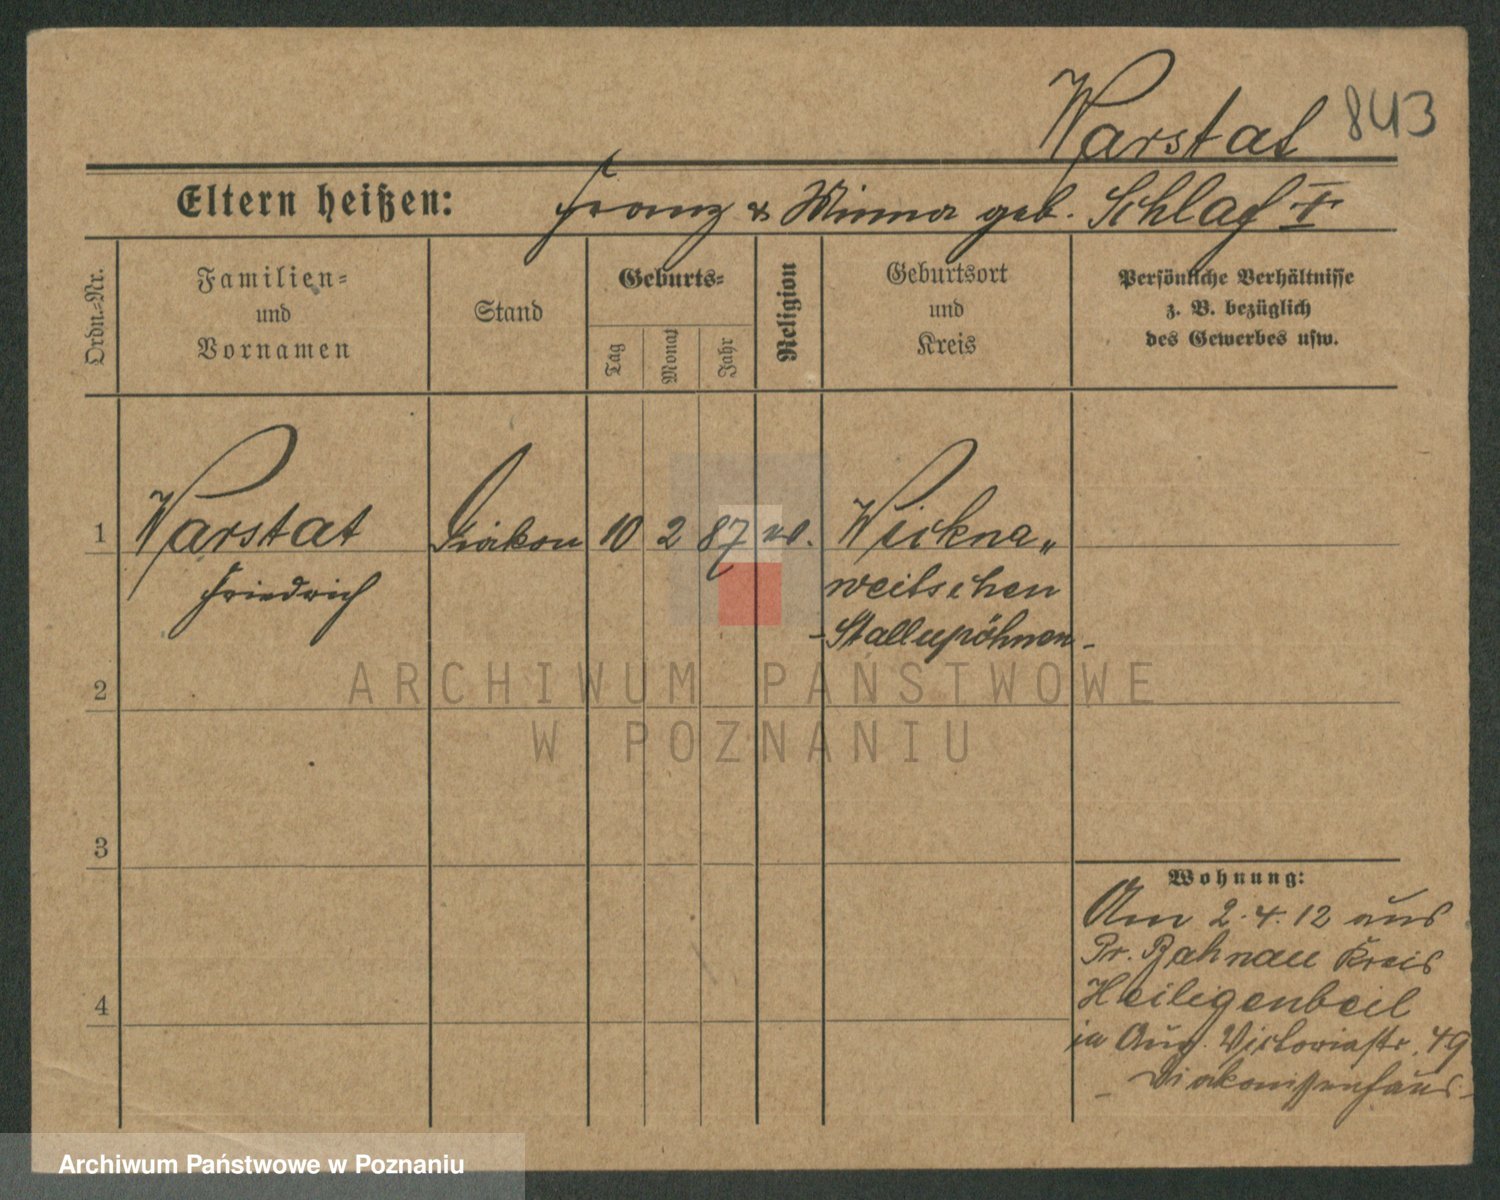 Warstat 843
Eltern heißen: Franz & Minna geb. Schlaf I
Ordn.-Nr.
Familien-
und
Vornamen
Stand
Geburts-
Tag
Monat
Jahr
Religion
Geburtsort
und
Kreis
Persönliche Verhältnisse
z. B. bezüglich
des Gewerbes usw.
1 Warstat Diakon 10 2 87 ev. Wickna„
Friedrich weitschen
-Stallupöhnen-
2
3
4
Wohnung:
Am 2.4.12 aus
Pr. Bahnau Kreis
Heiligenbeil
in Aug. Victoriastr. 49
- Diakonissenhaus -
ARCHIWUM PAŃSTWOWE
W POZNANIU
Archiwum Państwowe w Poznaniu